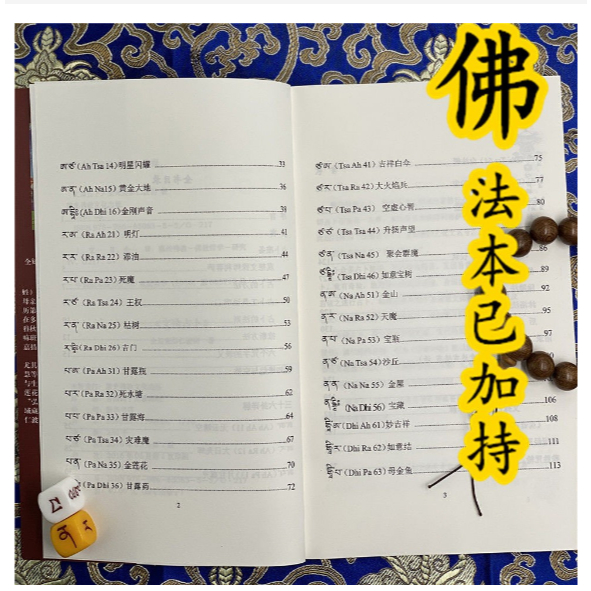 ཨཙ（Ah Tsa 14）明星闪耀 33
ཨན（Ah Na15）黄金大地 36
ཨདྷཱིཿ（Ah Dhi 16）金刚声音 39
རཨ（Ra Ah 21）明灯 41
རར（Ra Ra 22）添油 44
རཔ（Ra Pa 23）死魔 47
རཙ（Ra Tsa 24）王权 50
རན（Ra Na 25）枯树 53
རདྷཱིཿ（Ra Dhi 26）古门 56
པཨ（Pa Ah 31）甘露瓶 59
པར（Pa Ra 32）死水塘 62
པཔ（Pa Pa 33）甘露海 64
པཙ（Pa Tsa 34）灾难魔 67
པན（Pa Na 35）金莲花 70
（Pa Dhi 36）甘露药 72
2
ཙཨ（Tsa Ah 41）吉祥白伞 75
ཙར（Tsa Ra 42）大火焰兵 77
ཙཔ（Tsa Pa 43）空虚心智 80
ཙཙ（Tsa Tsa 44）升抚声望
ཙན（Tsa Na 45）聚会群魔 86
ཙདྷཱིཿ（Tsa Dhi 46）如意宝树 89
ནཨ（Na Ah 51）金山 92
ནར（Na Ra 52）天魔 95
ནཔ（Na Pa 53）宝 97
ནཙ（Na Tsa 54）沙丘
ནན（Na Na 55）金屋
ནདྷཱིཿ（Na Dhi 56）宝藏 106
དྷཱིཿཨ（Dhi Ah 61）妙吉祥 108
དྷཱིཿར（Dhi Ra 62）如意结 111
དྷཱིཿཔ（Dhi Pa 63）母金鱼 113
3
佛
法本已加持